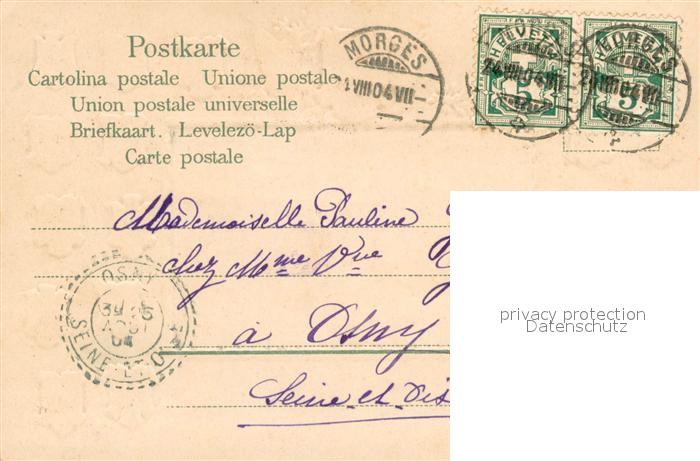 Postkarte
Cartolina postale Unione postale
Union postale universelle
Briefkaart. Levelezö-Lap
Carte postale
MORGES
VIII 04 VII
HELVETIA
24 VIII 04 VII
5
5
Mademoiselle Pauline
chez Mme Vve
à Osny
Seine et Ois
OSNY
AOUT
04
SEINE-ET-O
privacy protection
Datenschutz